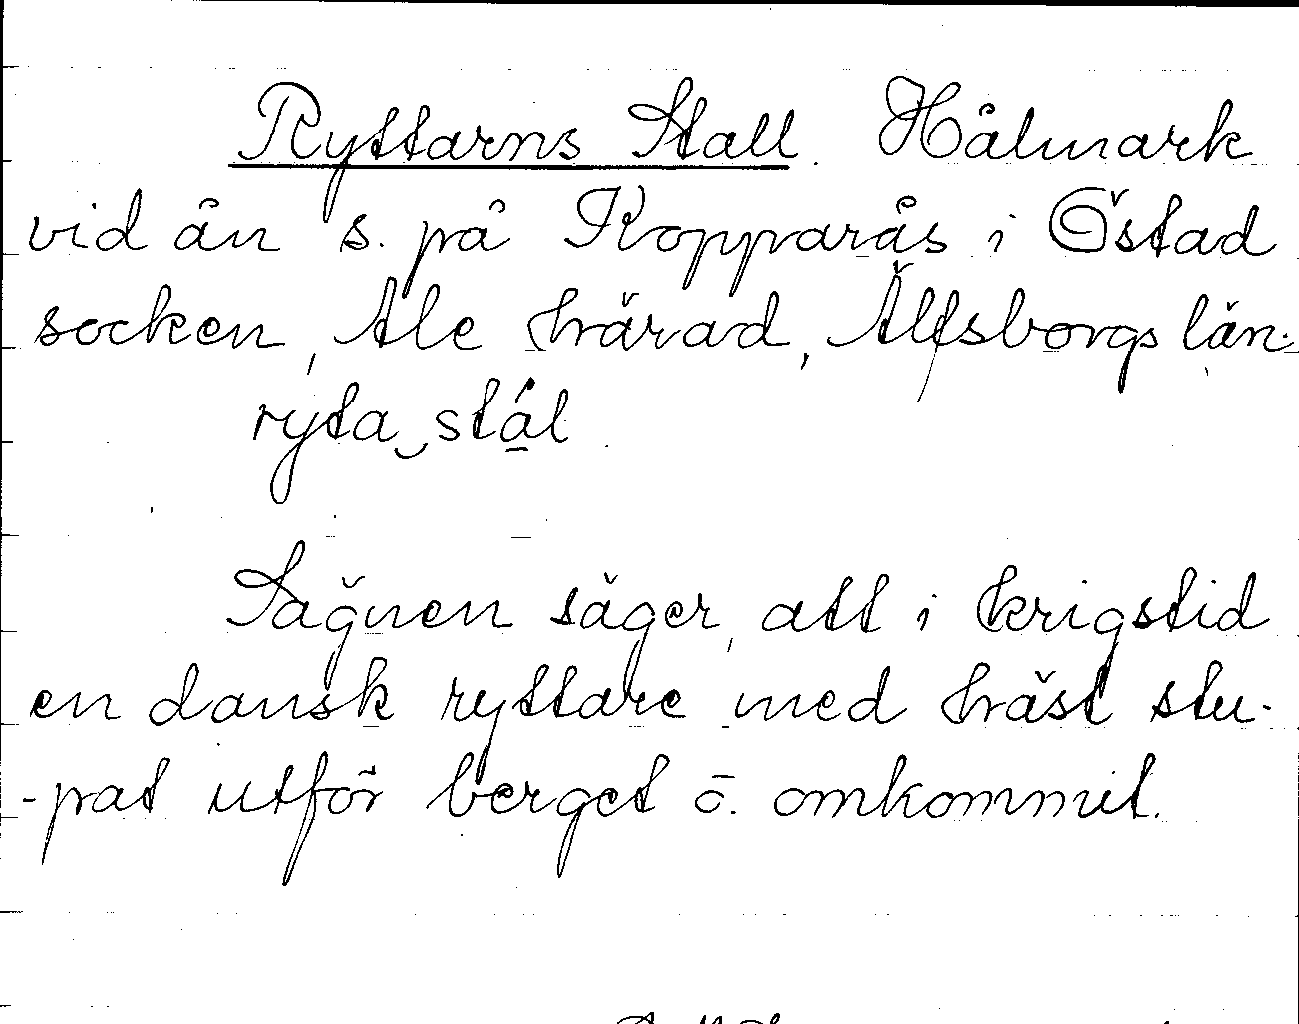 Ryttarns Stall. Hålmark
vid ån s. på Kopparås i Östad
socken, Ale härad, Älfsborgs län.
rýta‿stá̱l
Sägnen säger, att i krigstid
en dansk ryttare med häst stu-
-pat utför berget o. omkommit.